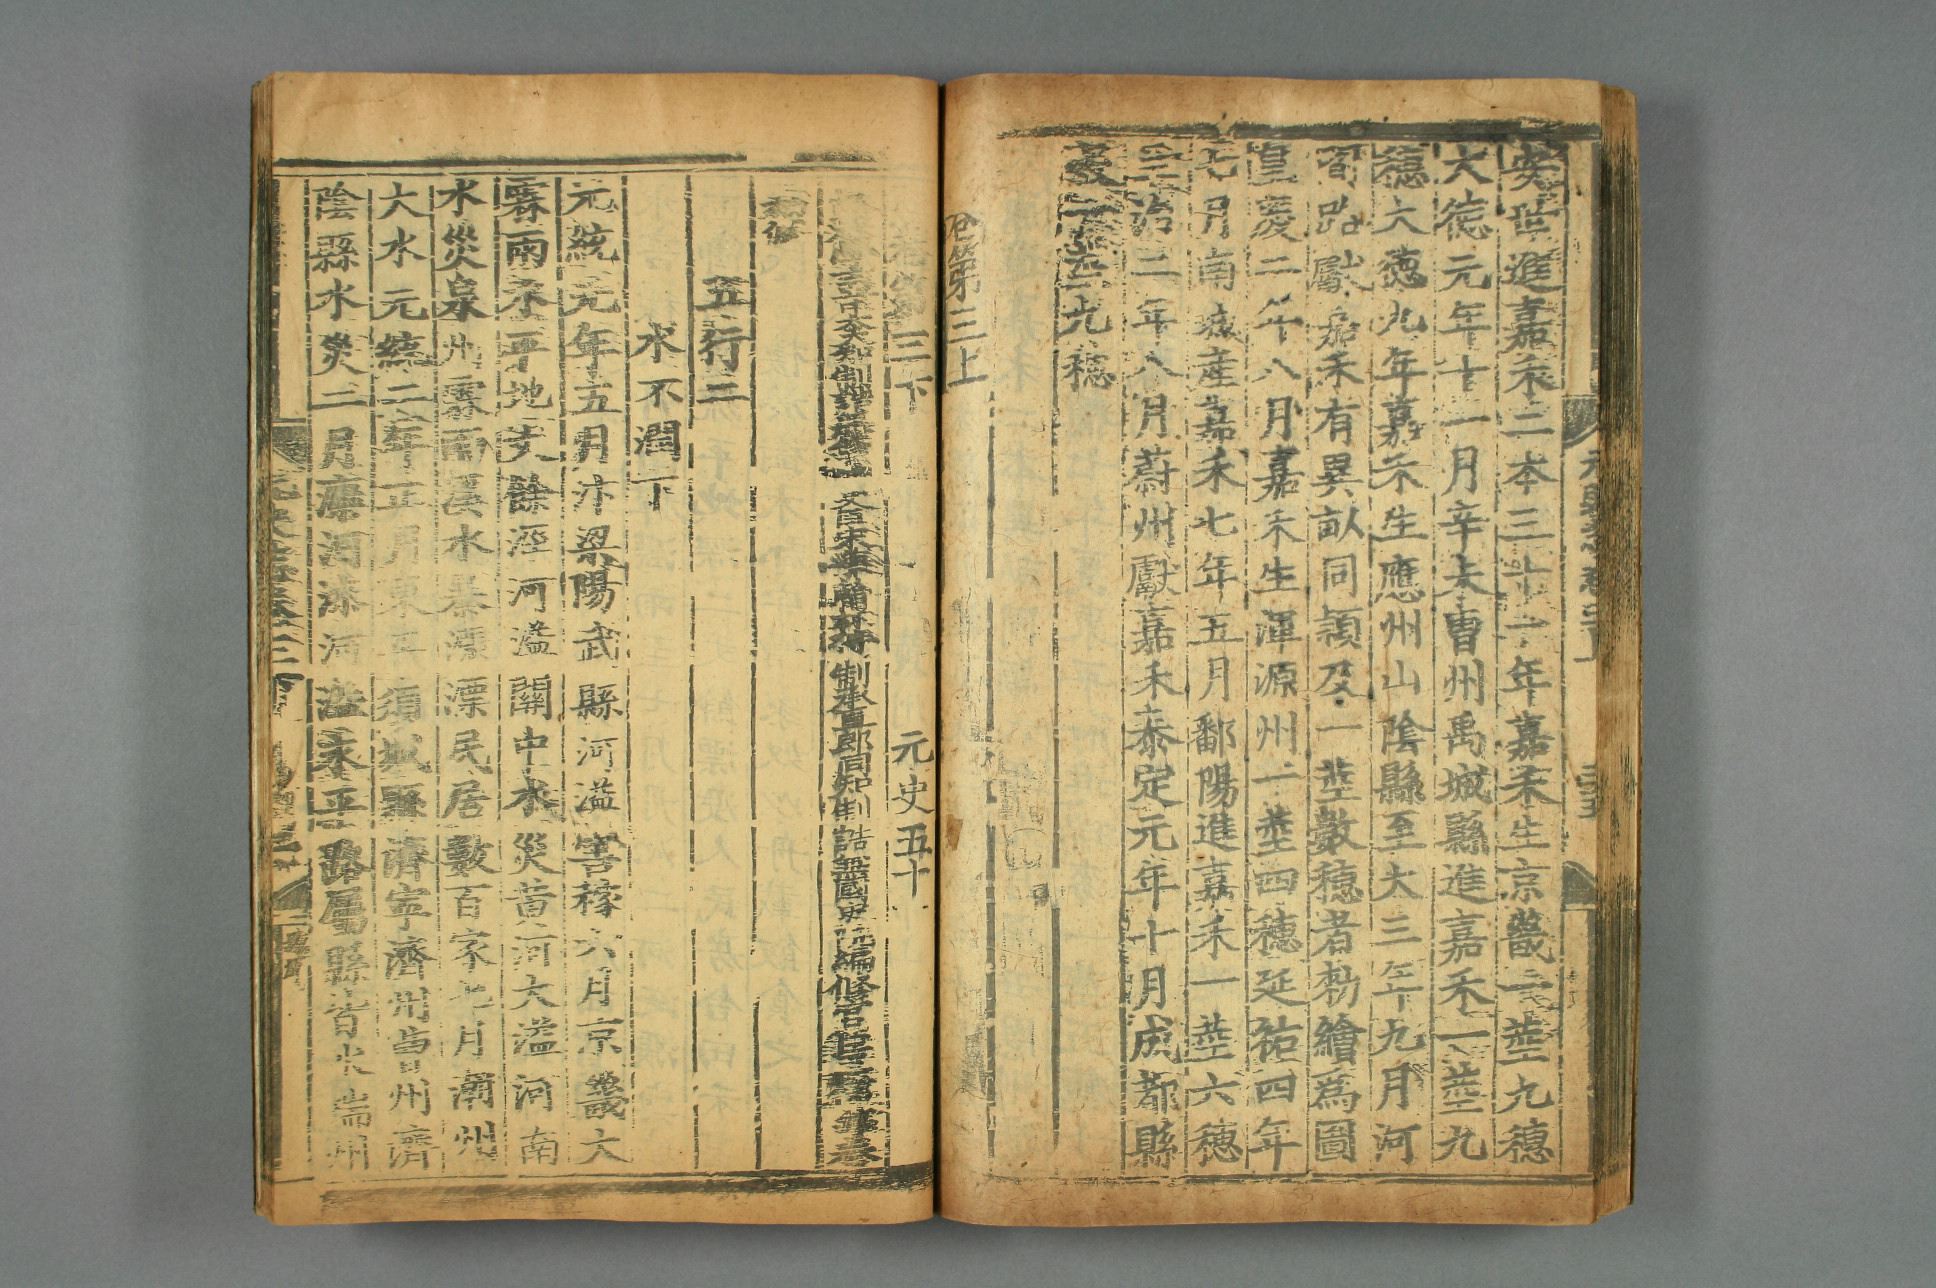 安世進嘉禾二本三十一年嘉禾生京畿一莖九穗
大德元年十一月辛未曹州禹城縣進嘉禾一莖九
穗大德九年嘉禾生應州山陰縣至大三年九月河
間路獻嘉禾有異畝同頴及一莖數穗者勑繪爲圖
皇慶二年八月嘉禾生渾源州一莖四穗延祐四年
七月南城產嘉禾七年五月鄱陽進嘉禾一莖六穗
至治二年八月蔚州獻嘉禾泰定元年十月成都縣
一莖九穗
卷第三上
志第三下 元史五十
制承直郎同知制誥兼國史院編修官
五行二
水不潤下
元統元年五月汴梁陽武縣河溢害稼六月京畿大
霖雨水平地丈餘涇河溢關中水災黃河大溢河南
水災泉州霖雨溪水暴漲漂民居數百家七月潮州
大水元統二年正月東平須城縣濟寧濟州曹州濟
陰縣水災二月灤河漆河溢永平路屬縣皆水瑞州